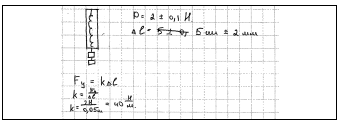 P = 2 ± 0,1 Н
Δl = 5 см ± 2 мм
Fу = kΔl
k = Fу/Δl
k = 2Н/0,05м = 40 Н/м.